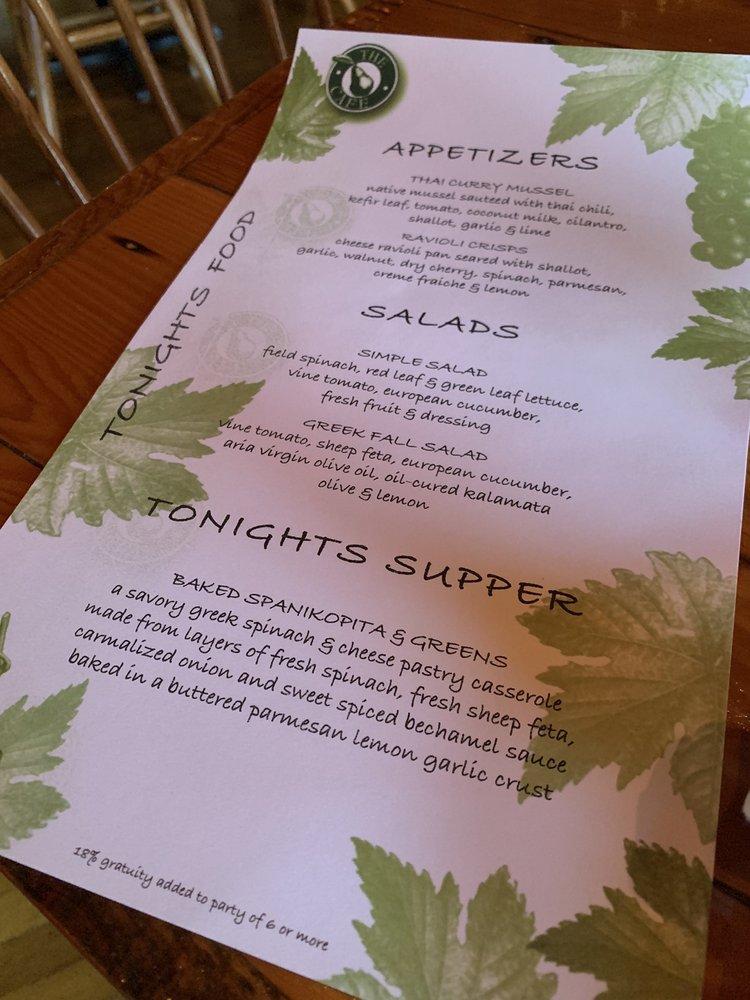 THE
CAFE
TONIGHTS FOOD
APPETIZERS
THAI CURRY MUSSEL
native mussel sauteed with thai chili,
kefir leaf, tomato, coconut milk, cilantro,
shallot, garlic & lime
RAVIOLI CRISPS
cheese ravioli pan seared with shallot,
garlic, walnut, dry cherry, spinach, parmesan,
creme fraiche & lemon
SALADS
SIMPLE SALAD
field spinach, red leaf & green leaf lettuce,
vine tomato, european cucumber,
fresh fruit & dressing
GREEK FALL SALAD
vine tomato, sheep feta, european cucumber,
aria virgin olive oil, oil-cured kalamata
olive & lemon
TONIGHTS SUPPER
BAKED SPANIKOPITA & GREENS
a savory greek spinach & cheese pastry casserole
made from layers of fresh spinach, fresh sheep feta,
carmalized onion and sweet spiced bechamel sauce
baked in a buttered parmesan lemon garlic crust
18% gratuity added to party of 6 or more